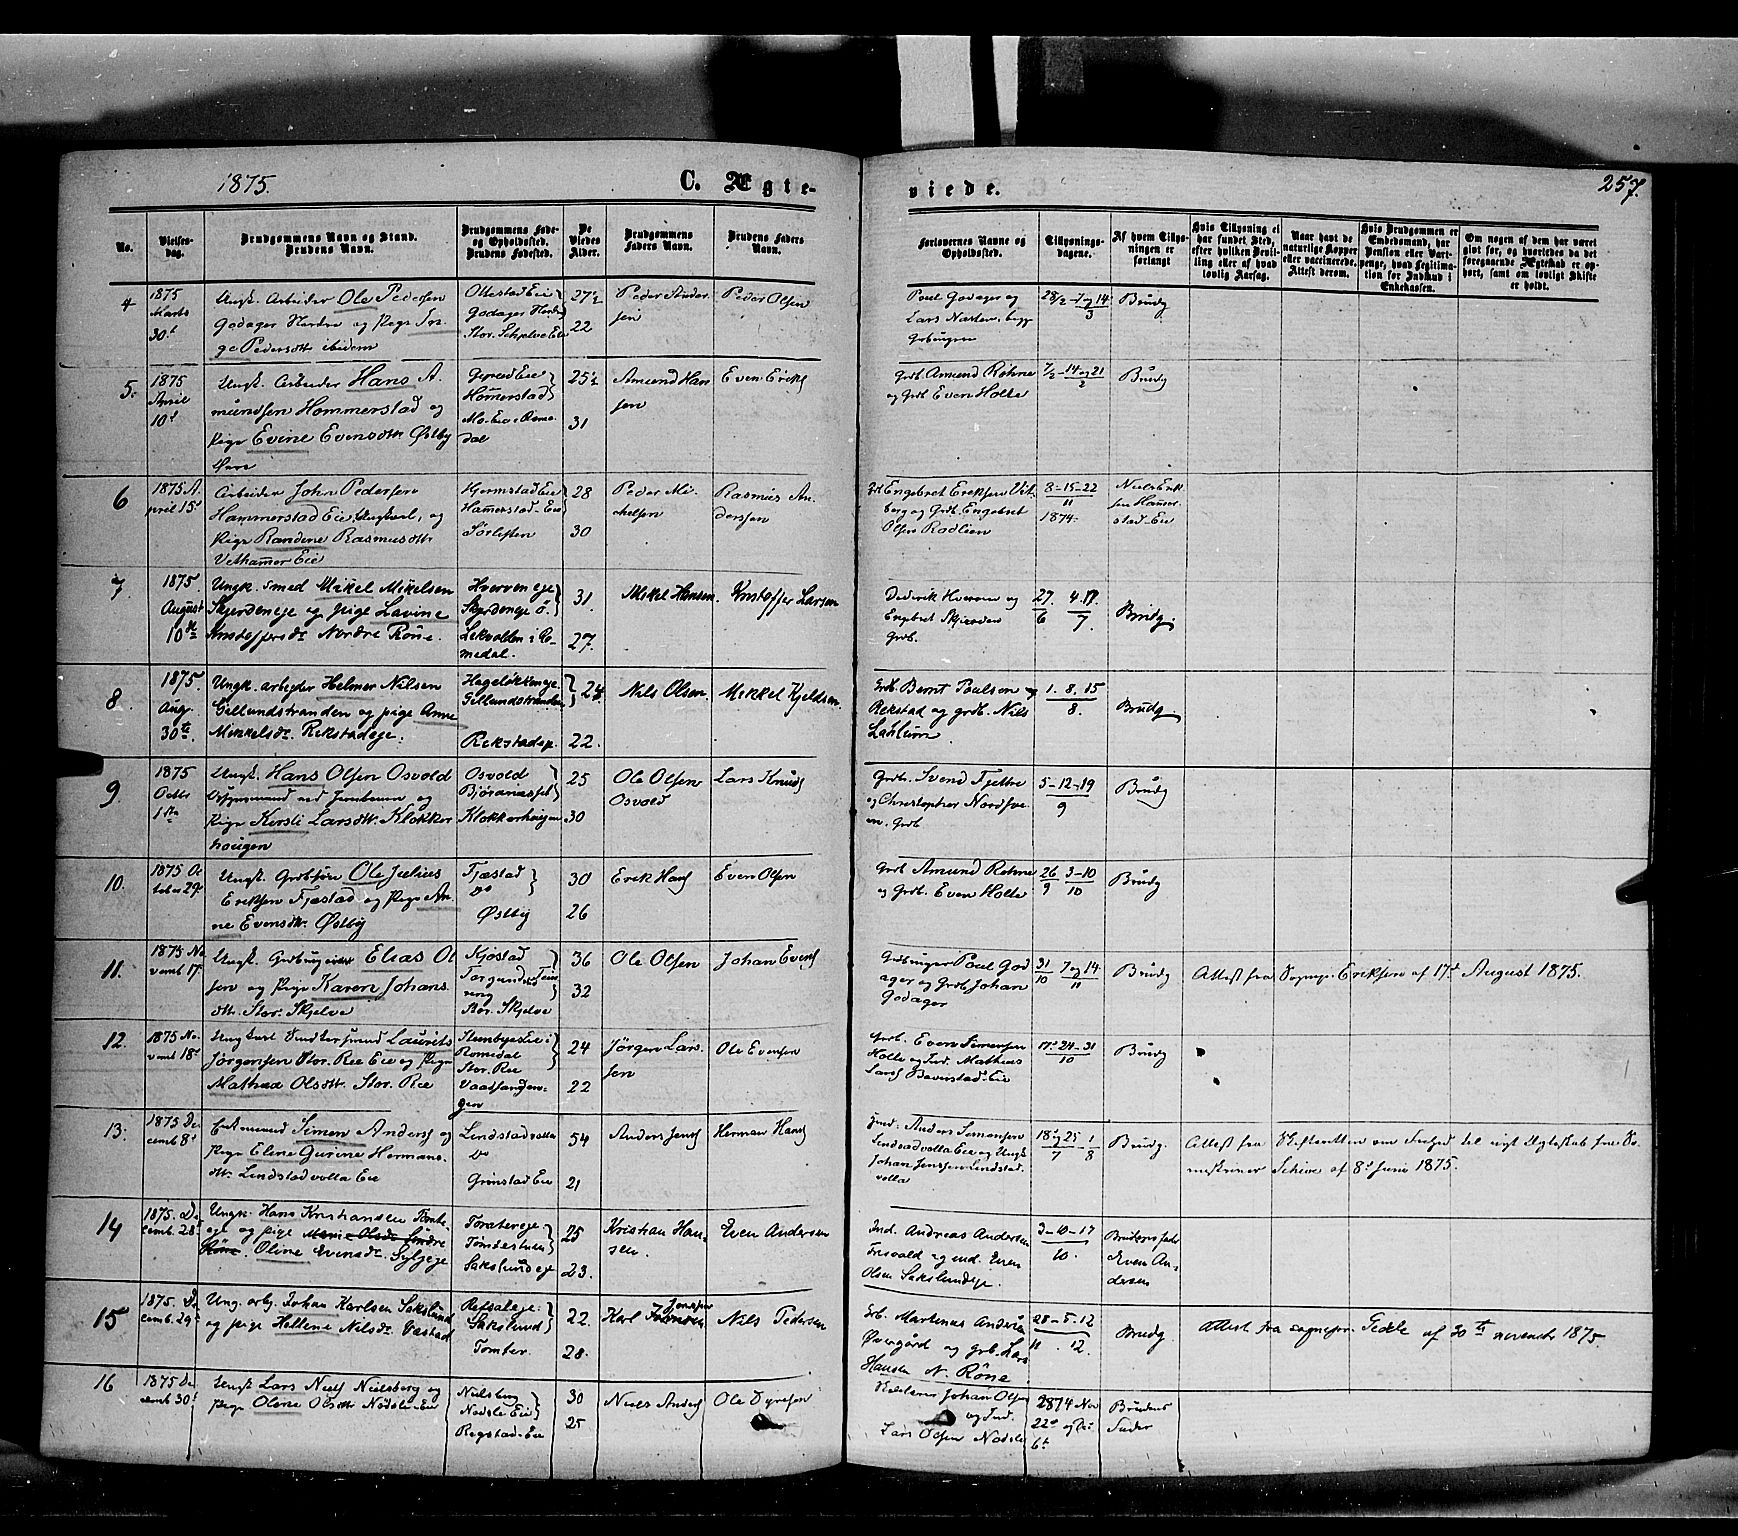 1875.
C. Ægte-
viede.
257.
No.
Vielses-
dag.
Brudgommens Navn og Stand.
Brudens Navn.
Brudgommens Føde-
og Opholdssted.
Brudens Fødested.
De
Viedes
Alder.
Brudgommens
Faders Navn.
Brudens Faders
Navn.
Forlovernes Navne og
Opholdssted.
Tillysnings-
dagene.
Af hvem Tillys-
ningen er
forlangt
Hvis Tillysning ei
har fundet Sted,
efter hvilken Bevil-
ling eller af hvad
lovlig Aarsag.
Naar havt de
naturlige Kopper
eller vaccinerede.
Attest derom.
Hvis Brudgommen er
Embedsmand, har
Pension eller Vart-
penge, hvad Legitima-
tion for Indskud i
Enkekassen.
Om nogen af dem har været
gift før, og hvorledes da det
foregaaende Ægteskab er op-
hørt, samt om lovligt Skifte
er holdt.
4
1875
Marts
30t
Ungk. Arbeider Ole Pedersen
Godager Nordre og Pige In-
ge Pedersdtt ibidem
Ottestad Eie
Godager Nordre
Stor. Schjelve Eie
27½
22
Peder Ander
sen
Peder Olsen
Poul Godager og
Lars Næsten, begge
Grdbrugere
28/2 - 7 og 14/3
Brudg
5.
1875
April
10t
Ungk. Arbeider Hans A-
mundsen Hommerstad og
Pige Evine Evensdtt Østby
Hommerstad
Mo-Eie i Rome
dal
25½
31
Amund Han
sen
Even Eriks
Grdb. Amund Røhne
og Grdb. Even Holte
7/2 - 14 og 21/2
Brudg
6
1875 A-
pril 15d
Arbeider John Pedersen
Hammerstad Eie, Ungkarl, og
Pige Randine Rasmusdtt.
Vethammer Eie
Hjermstad Eie
Hamerstad-Eie
Sørlisten
28
30
Peder Mi-
chelsen
Rasmus An
dersen
Engebret Eriksen Vit
berg og Grdb. Engebret
Olsen Rødlien
8-15-22
11
1874.
Niels Erik
sen Hamer
stad-Eie
7
1875.
August
10de
Ungk. smed Mikel Mikelsen
Skjerdeneje og pige Lavine
Kristoffersdr. Nordre Røne.
Hverveneje
Skjerdeneje Ø.
Lekvolden i Ro-
medal.
31
27.
Mikel Hansen.
Kristoffer Larsen
Dederik Hverven og
Engebret Skjerden
Grdb.
27/6 4.11/7
Brudg.
8.
1875.
Aug.
30te.
Ungk. arbejder Helmer Nilsen
Gillundstranden og pige Anne
Mikkelsdr. Rekstadeje.
Hageløkkeneje.
Gillundstranden
Rekstadeje.
24
22.
Nils Olsen.
Mikkel Kjeldsen.
Grdb. Bernt Poulsen og
Rekstad og grdb. Nils
Laklum.
1. 8. 15
8.
Brudg.
9.
1875
Octbr
1ste
Ungk. Hans Olsen Osvold
Opsynsmand ved Jernbanen og
Pige Kersti Larsdtt. Klokker
haugen
Osvold
Klokkerhaugen
25
30
Ole Olsen
Osvold
Lars Knuds
Grdb. Svend Tjette
og Christopher Nordsve
en. Grdb
5-12-19
9
Brudg
10.
1875 Oc
tober 29d
Ungk. Grdbs. Ole Julius
Eriksen Fjæstad og Pige An-
ne Evensdtt. Østby
Fjæstad
do
Østby
30
26
Erik Hans
Even Olsen
Grdb Amund Røhne
og Grdb. Even Holte
26/9 3-10/10
Brudg
11.
1875 No
vemb 17d
Ungk. Elias Ol
sen og Pige Karen Johans
dtt. Stor. Skjelve
Kjøstad
Stor. Skjelve
36
32
Ole Olsen
Johan Evens
Grdbruger Poul God
ager og Grdb. Johan
Godager
31/10 7 og 14/11
Brudg
Attest fra Sognepr. Eriksen af 17d August 1875.
12.
1875 No
vemb 18d
Ungkarl Laurits
Jörgensen Stor. Ree Eie og Pige
Mathea Olsdtt. Stor. Ree
Stenbyes Eie i
Romedal
Stor. Ree
24
22
Jörgen Lars
sen
Ole Evensen
Grdb. Even Simensen
Holte og Ind. Mathias
Lars Baverstad-Eie
17-24-31
10
Brudg
13.
1875 De
cemb 8d
Enkemand Simen Anders og
Pige Eline Gurine Hermans-
dtt. Lindstadvolla Eie
Lindstadvolla
do
Grinstad Eie
54
21
Anders Jens
Herman Hans
Ind. Anders Simensen
Lindstadvolla Eie og Ungk
Johan Jensen Lindstad
volla
18 og 25/7 - 1/8
Brudg.
Attest fra Skifteretten om Frihed til nyt Ægteskab fra So-
renskriver Schive af 8d Juni 1875.
14
1875. De
cemb. 28d
Ungk. Hans Kristiansen Tomte-
eje og pige Marie Olsdr. Søndre
Røne. Oline Evensdr. Sylyeje
Tomtereje
Tomterstuen
Sakslundeje
25
23.
Kristian Han-
sen.
Even Andersen
Ind. Andreas Andersen
Frisvold og ind. Even
Olsen Sakslundeje.
3-10-17
10.
Brudens fader
Even An-
dersen
15
1875. De
cemb. 29d
Ung. arb. Johan Karlsen Sakslund
og pige Hellene Nilsdr. Væstad
Refsaleje.
Sakslund
Tomter.
22.
28.
Karl Jensen
Nils Pedersen
Grb. Martinus Anders
Øvergård og grb. Lars
Hansen N. Røne.
28-5.12
11 . 12.
Brudg.
Attest fra sognepr. Gedde af 30te november 1875.
16
1875 De
cemb 30d
Ungk Lars Niels Nielsberg og
Pige Oline Olsdtt Nodsle-Eie
Nielsberg
Nodsle Eie
Rogstad-Eie
30
25
Niels Anders
Ole Dyresen
Johan Olsen
og Ind.
Lars Olsen Nodsle
2874 Nov
22d og De
6t
Brudens
Fader